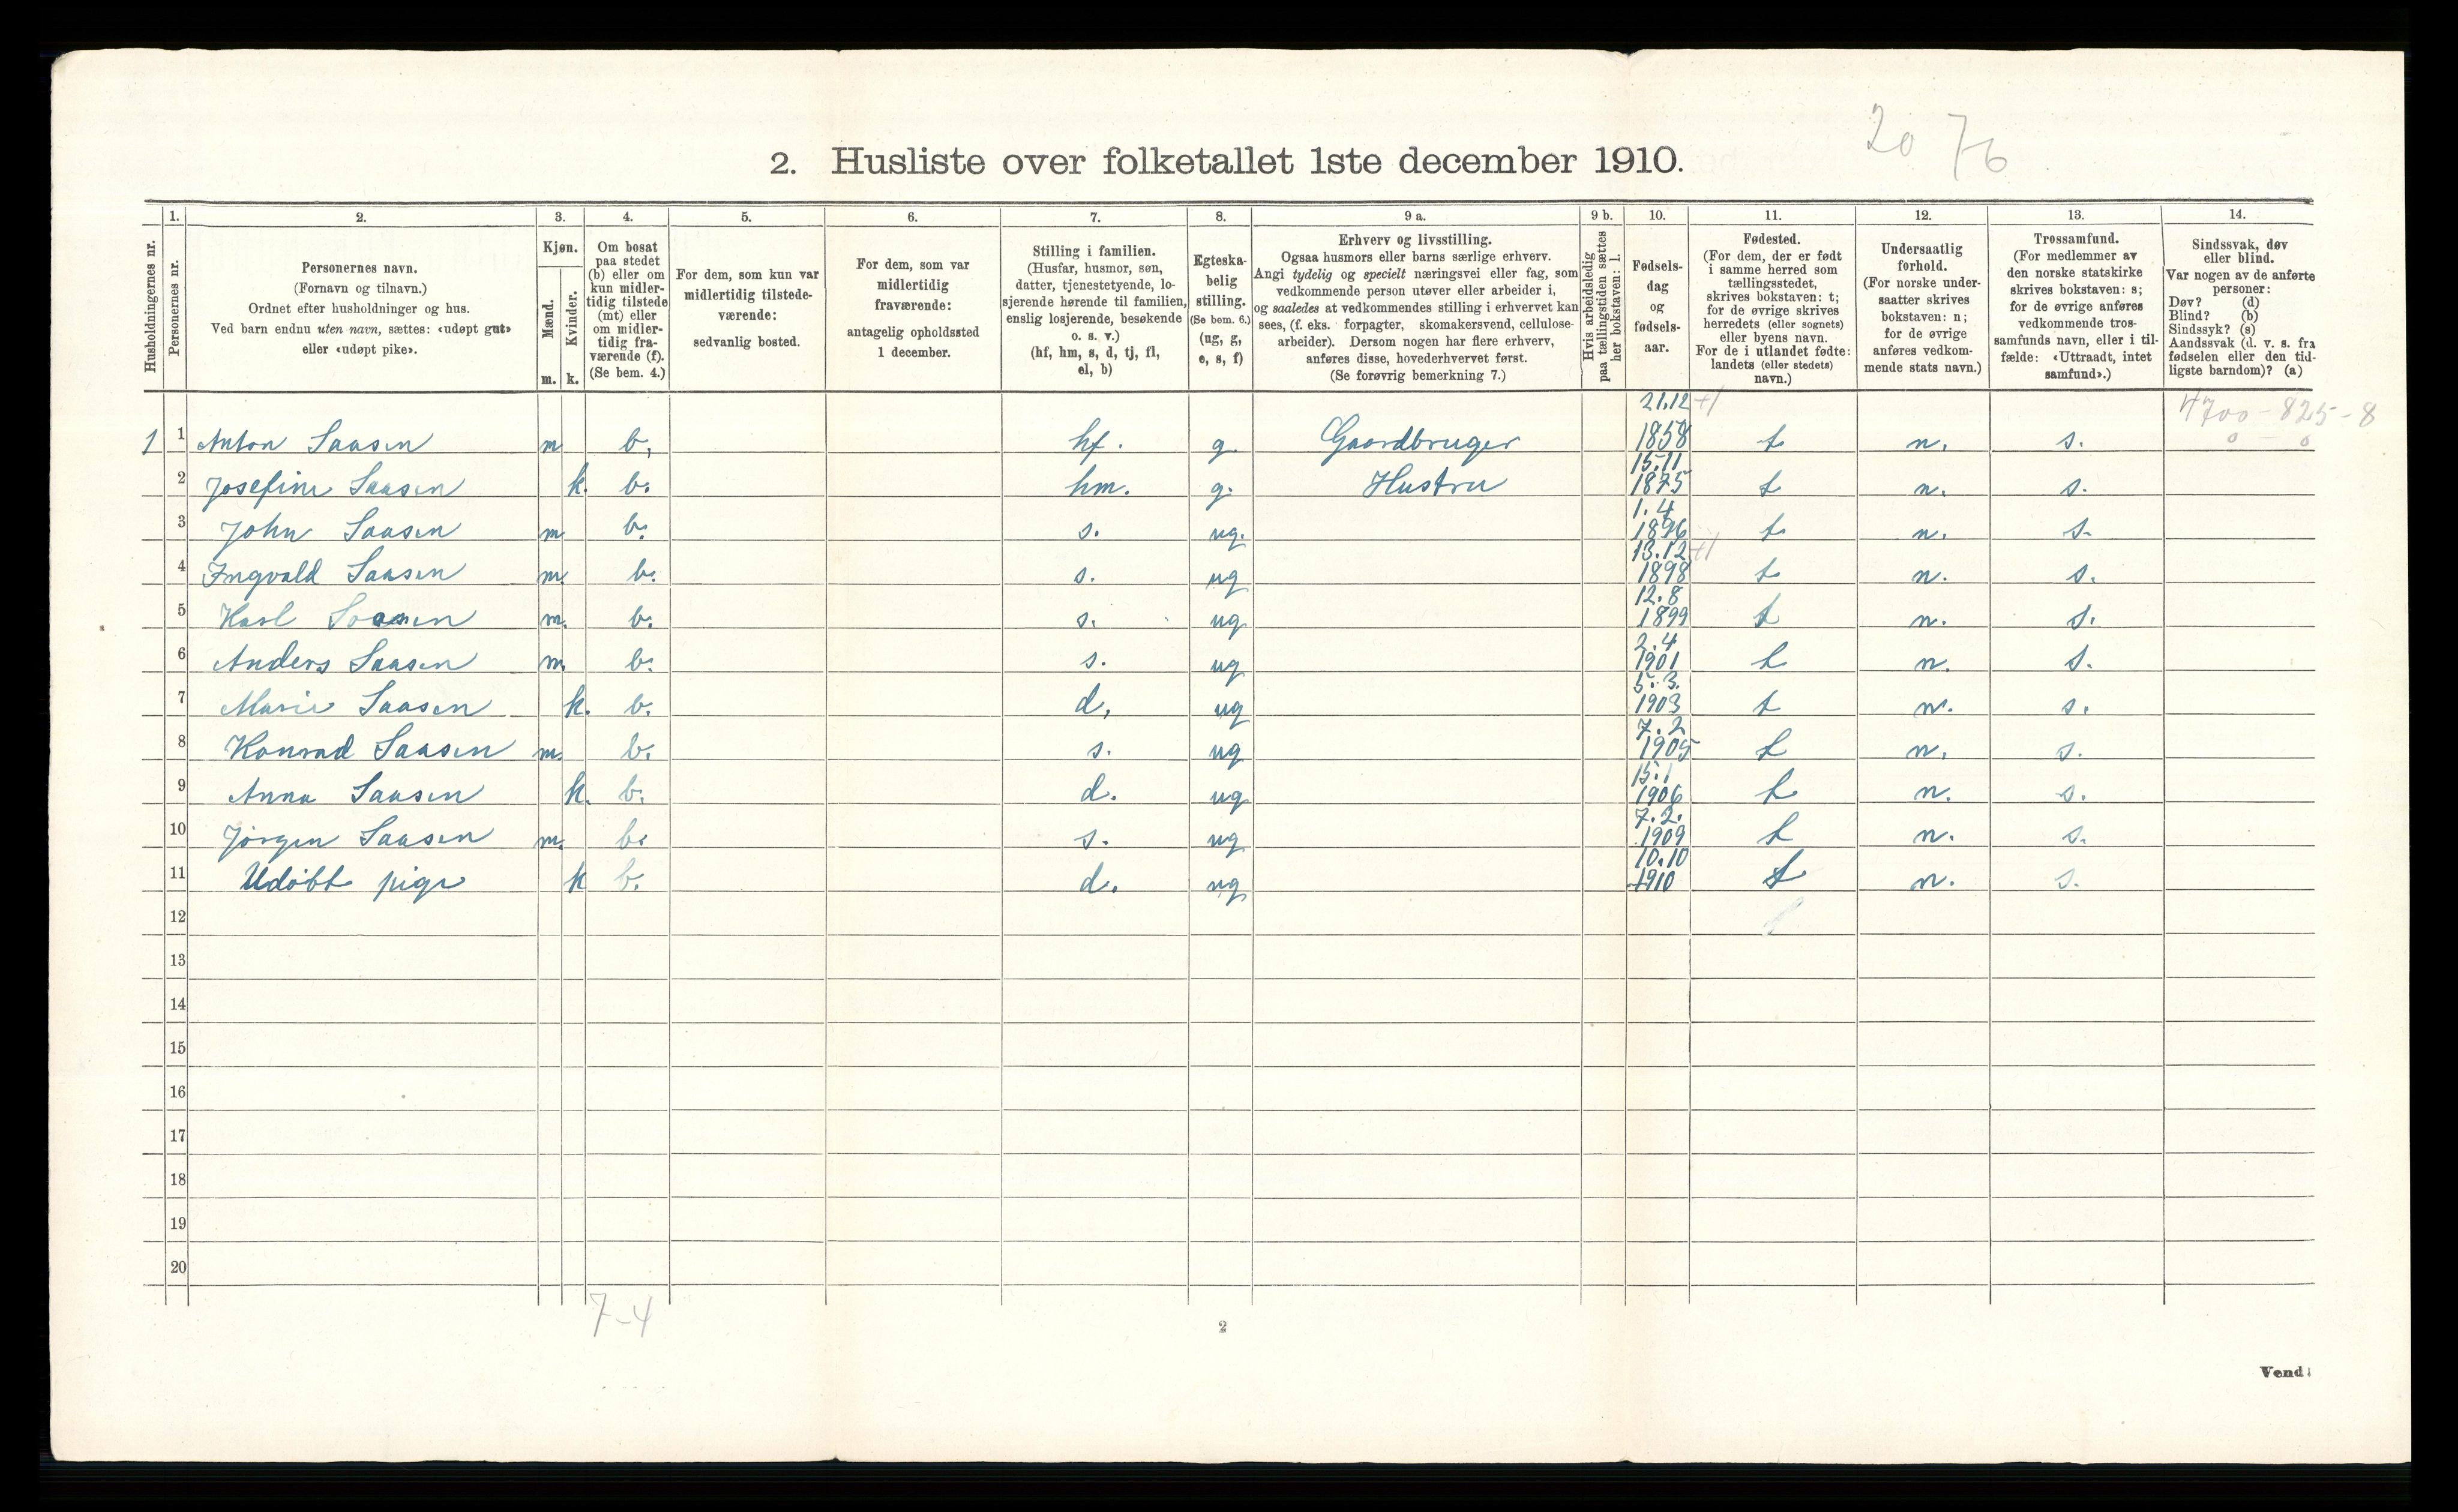 20 76
2. Husliste over folketallet 1ste december 1910.
Husholdningernes nr.
1.
Personernes nr.
2.
Personernes navn.
(Fornavn og tilnavn.)
Ordnet efter husholdninger og hus.
Ved barn endnu uten navn, sættes: «udøpt gut»
eller «udøpt pike».
3.
Kjøn.
Mænd.
Kvinder.
m. k.
4.
Om bosat
paa stedet
(b) eller om
kun midler-
tidig tilstede
(mt) eller
om midler-
tidig fra-
værende (f).
(Se bem. 4.)
5.
For dem, som kun var
midlertidig tilstede-
værende:
sedvanlig bosted.
6.
For dem, som var
midlertidig
fraværende:
antagelig opholdssted
1 december.
7.
Stilling i familien.
(Husfar, husmor, søn,
datter, tjenestetyende, lo-
sjerende hørende til familien,
enslig losjerende, besøkende
o. s. v.)
(hf, hm, s, d, tj, fl,
el, b)
8.
Egteska-
belig
stilling.
(Se bem. 6.)
(ug, g,
e, s, f)
9 a.
Erhverv og livsstilling.
Ogsaa husmors eller barns særlige erhverv.
Angi tydelig og specielt næringsvei eller fag, som
vedkommende person utøver eller arbeider i,
og saaledes at vedkommendes stilling i erhvervet kan
sees, (f. eks. forpagter, skomakersvend, cellulose-
arbeider). Dersom nogen har flere erhverv,
anføres disse, hovederhvervet først.
(Se forøvrig bemerkning 7.)
9 b.
Hvis arbeidsledig
paa tællingstiden sættes
her bokstaven: l.
10.
Fødsels-
dag
og
fødsels-
aar.
11.
Fødested.
(For dem, der er født
i samme herred som
tællingsstedet,
skrives bokstaven: t;
for de øvrige skrives
herredets (eller sognets)
eller byens navn.
For de i utlandet fødte:
landets (eller stedets)
navn.)
12.
Undersaatlig
forhold.
(For norske under-
saatter skrives
bokstaven: n;
for de øvrige
anføres vedkom-
mende stats navn.)
13.
Trossamfund.
(For medlemmer av
den norske statskirke
skrives bokstaven: s;
for de øvrige anføres
vedkommende tros-
samfunds navn, eller i til-
fælde: «Uttraadt, intet
samfund».)
14.
Sindssvak, døv
eller blind.
Var nogen av de anførte
personer:
Døv? (d)
Blind? (b)
Sindssyk? (s)
Aandssvak (d. v. s. fra
fødselen eller den tid-
ligste barndom)? (a)
4700 - 825 - 8
0 - 0
1 1 Anton Saasen m b. hf. g. Gaardbruger 21.12 1858 t n. s.
2 Josefine Saasen k. b. hm. g. Hustru 15.11 1875 t n. s.
3 John Saasen m b. s. ug. 1.4 1896 t n. s.
4 Ingvald Saasen m. b. s. ug 13.12 1898 t n. s.
5 Karl Saasen m. b. s. ug 12.8 1899 t n. s.
6 Anders Saasen m. b. s. ug 2.4 1901 t n. s.
7 Marie Saasen k. b. d. ug 5.3. 1903 t n. s.
8 Konrad Saasen m. b. s. ug 7.2 1905 t n. s.
9 Anna Saasen k. b. d. ug 15.1 1906 t n. s.
10 Jørgen Saasen m. b. s. ug 7.2. 1909 t n. s.
11 Udøbt pige k b. d. ug 10.10 1910 t n. s.
12
13
14
15
16
17
18
19
20
7-4
2
Vend!